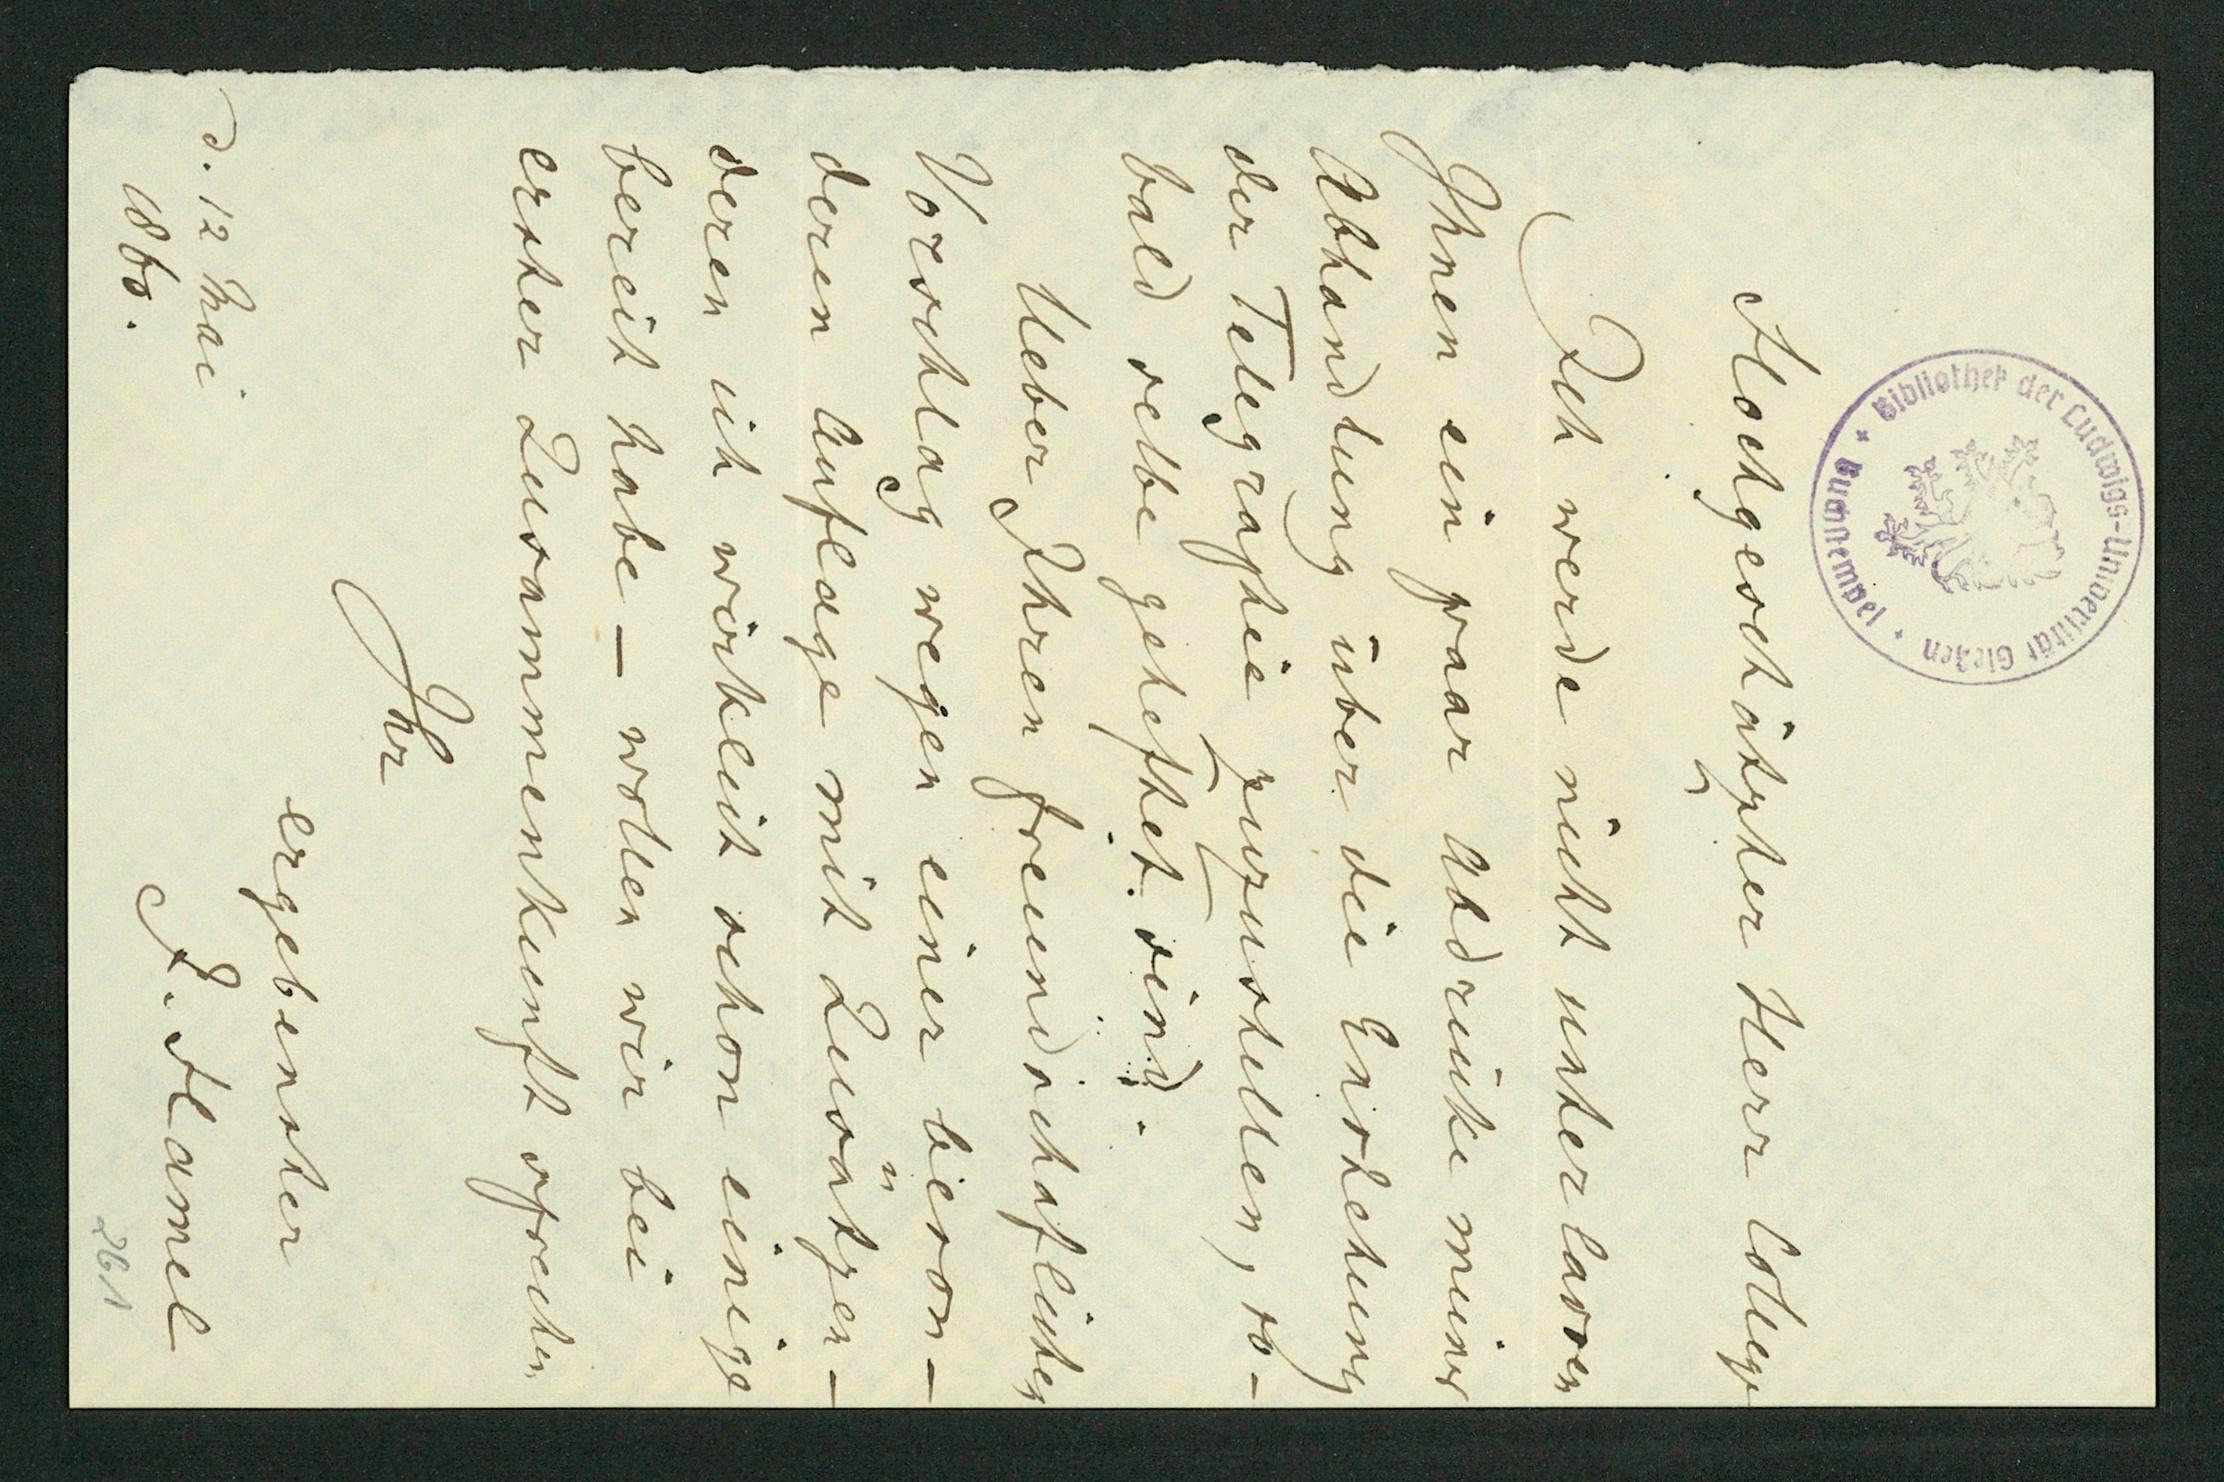 Bibliothek der Ludwigs-Universität Gießen
Buchstempel
Hochgeschätzter Herr College
Ich werde nicht unterlassen
Ihnen ein paar Abdrücke meiner
Abhandlung über die Entstehung
der Telegraphie zuzustellen, so-
bald selbe geheftet sind.
Ueber Ihren freundschaftlichen
Vorschlag wegen einer beson-
deren Auflage mit Zusätzen –
deren ich wirklich schon einige
bereit habe – wollen wir bei
erster Zusammenkunft sprechen
Ihr
ergebenster
J. Hamel
d. 12 Mai
1860.
261